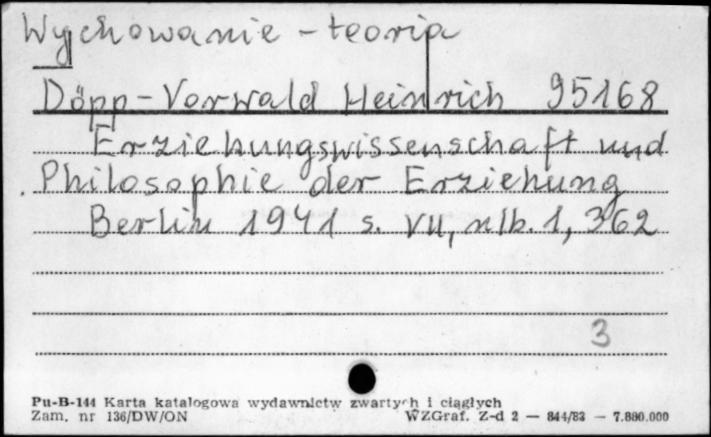 Wychowanie - teoria
Döpp-Vorwald Heinrich 95168
Erziehungswissenschaft und
Philosophie der Erziehung
Berlin 1941 s. VII, nlb. 1, 362
3
Pu-B-144 Karta katalogowa wydawnictw zwartych i ciągłych
Zam. nr 136/DW/ON WZGraf. Z-d 2 — 844/83 — 7.880.000